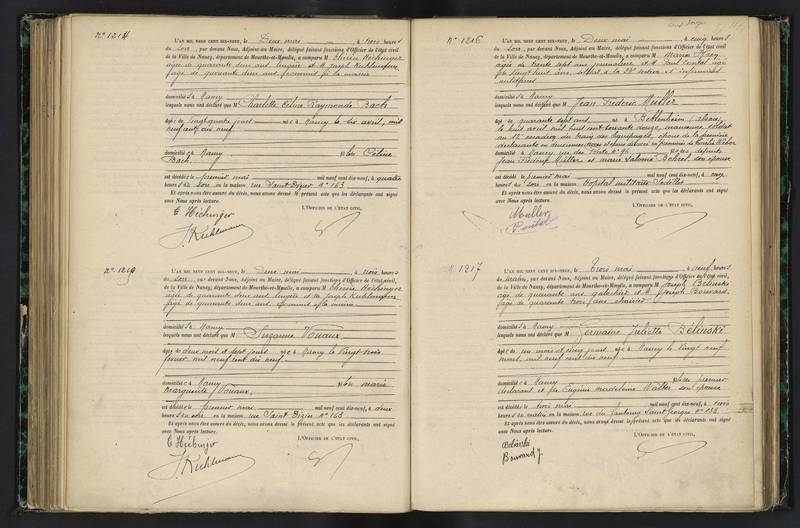 N° 1214
L'AN MIL NEUF CENT DIX-NEUF, le Deux mai, à trois heures
du soir, par devant Nous, Adjoint au Maire, délégué faisant fonctions d'Officier de l'état civil
de la Ville de Nancy, département de Meurthe-et-Moselle, a comparu M
agée de quarante deux ans lingère et M. Joseph
âgé de quarante deux ans
domicilié à Nancy
lesquels nous ont déclaré que M Charlotte Céline Raymonde Bach
âgée de vingt quatre jours née à Nancy le avril, mil
neuf cent dix neuf
domiciliée à Nancy fille Céline
Bach.
est décédée le premier mai mil neuf cent dix-neuf, à quatre
heures du soir, en sa maison rue Saint-Dizier N° 163
Et après nous être assuré du décès, nous avons dressé le présent acte que les déclarants ont signé
avec Nous après lecture.
L'OFFICIER DE L'ÉTAT CIVIL,
J. Kuhlmann
L'AN MIL NEUF CENT DIX-NEUF, le Deux mai, à trois heures
du soir, par devant Nous, Adjoint au Maire, délégué faisant fonctions d'Officier de l'état civil,
de la Ville de Nancy, département de Meurthe-et-Moselle, a comparu M
agée de quarante deux ans lingère et M. Joseph
âgé de quarante deux ans
domicilié à Nancy
lesquels nous ont déclaré que M Suzanne Vouaux
âgée de deux mois et sept jours née à Nancy le vingt trois
février mil neuf cent dix neuf.
domiciliée à Nancy fille de Marie
Marguerite Vouaux.
est décédée le premier mai mil neuf cent dix-neuf, à deux
heures du soir, en sa maison rue Saint Dizier N° 163
Et après nous être assuré du décès, nous avons dressé le présent acte que les déclarants ont signé
avec Nous après lecture.
L'OFFICIER DE L'ÉTAT CIVIL,
J. Kuhlmann
N° 1216
L'AN MIL NEUF CENT DIX-NEUF, le Deux mai, à cinq heures
du soir, par devant Nous, Adjoint au Maire, délégué faisant fonctions d'Officier de l'état civil
de la Ville de Nancy, département de Meurthe-et-Moselle, a comparu M
agée de trente sept ans journalière et M. Paul
âgé de vingt huit ans, soldat à la 23e section d'infirmiers
militaires
domicilié à Nancy
lesquels nous ont déclaré que M Jean Frédéric Müller
âgé de quarante sept ans né à Bettenheim (Alsace)
le huit avril mil huit cent soixante douze, manœuvre, soldat
au 12e escadron du train des Équipages, époux de la première
déclarante
domicilié à Nancy
Jean Frédéric Müller et Marie Salomé son épouse
est décédé le premier mai mil neuf cent dix-neuf, à onze
heures du soir, en sa maison Hôpital militaire Sédillot
Et après nous être assuré du décès, nous avons dressé le présent acte que les déclarants ont signé
avec Nous après lecture.
L'OFFICIER DE L'ÉTAT CIVIL,
Muller
N° 1217
L'AN MIL NEUF CENT DIX-NEUF, le Trois mai, à neuf heures
du matin, par devant Nous, Adjoint au Maire, délégué faisant fonctions d'Officier de l'état civil,
de la Ville de Nancy, département de Meurthe-et-Moselle, a comparu M Joseph Belinski
âgé de quarante ans et M. Joseph Bouvard,
âgé de quarante trois ans
domicilié à Nancy
lesquels nous ont déclaré que M Germaine Juliette Belinski
âgée de un mois et cinq jours née à Nancy le vingt neuf
mars, mil neuf cent dix neuf
domiciliée à Nancy fille du premier
déclarant et de Eugénie Madeleine Walter son épouse
est décédée le trois mai mil neuf cent dix-neuf, à trois
heures du matin, en sa maison rue du faubourg Saint Georges N° 133
Et après nous être assuré du décès, nous avons dressé le présent acte que les déclarants ont signé
avec Nous après lecture.
L'OFFICIER DE L'ÉTAT CIVIL,
Belinski
Bouvard J.